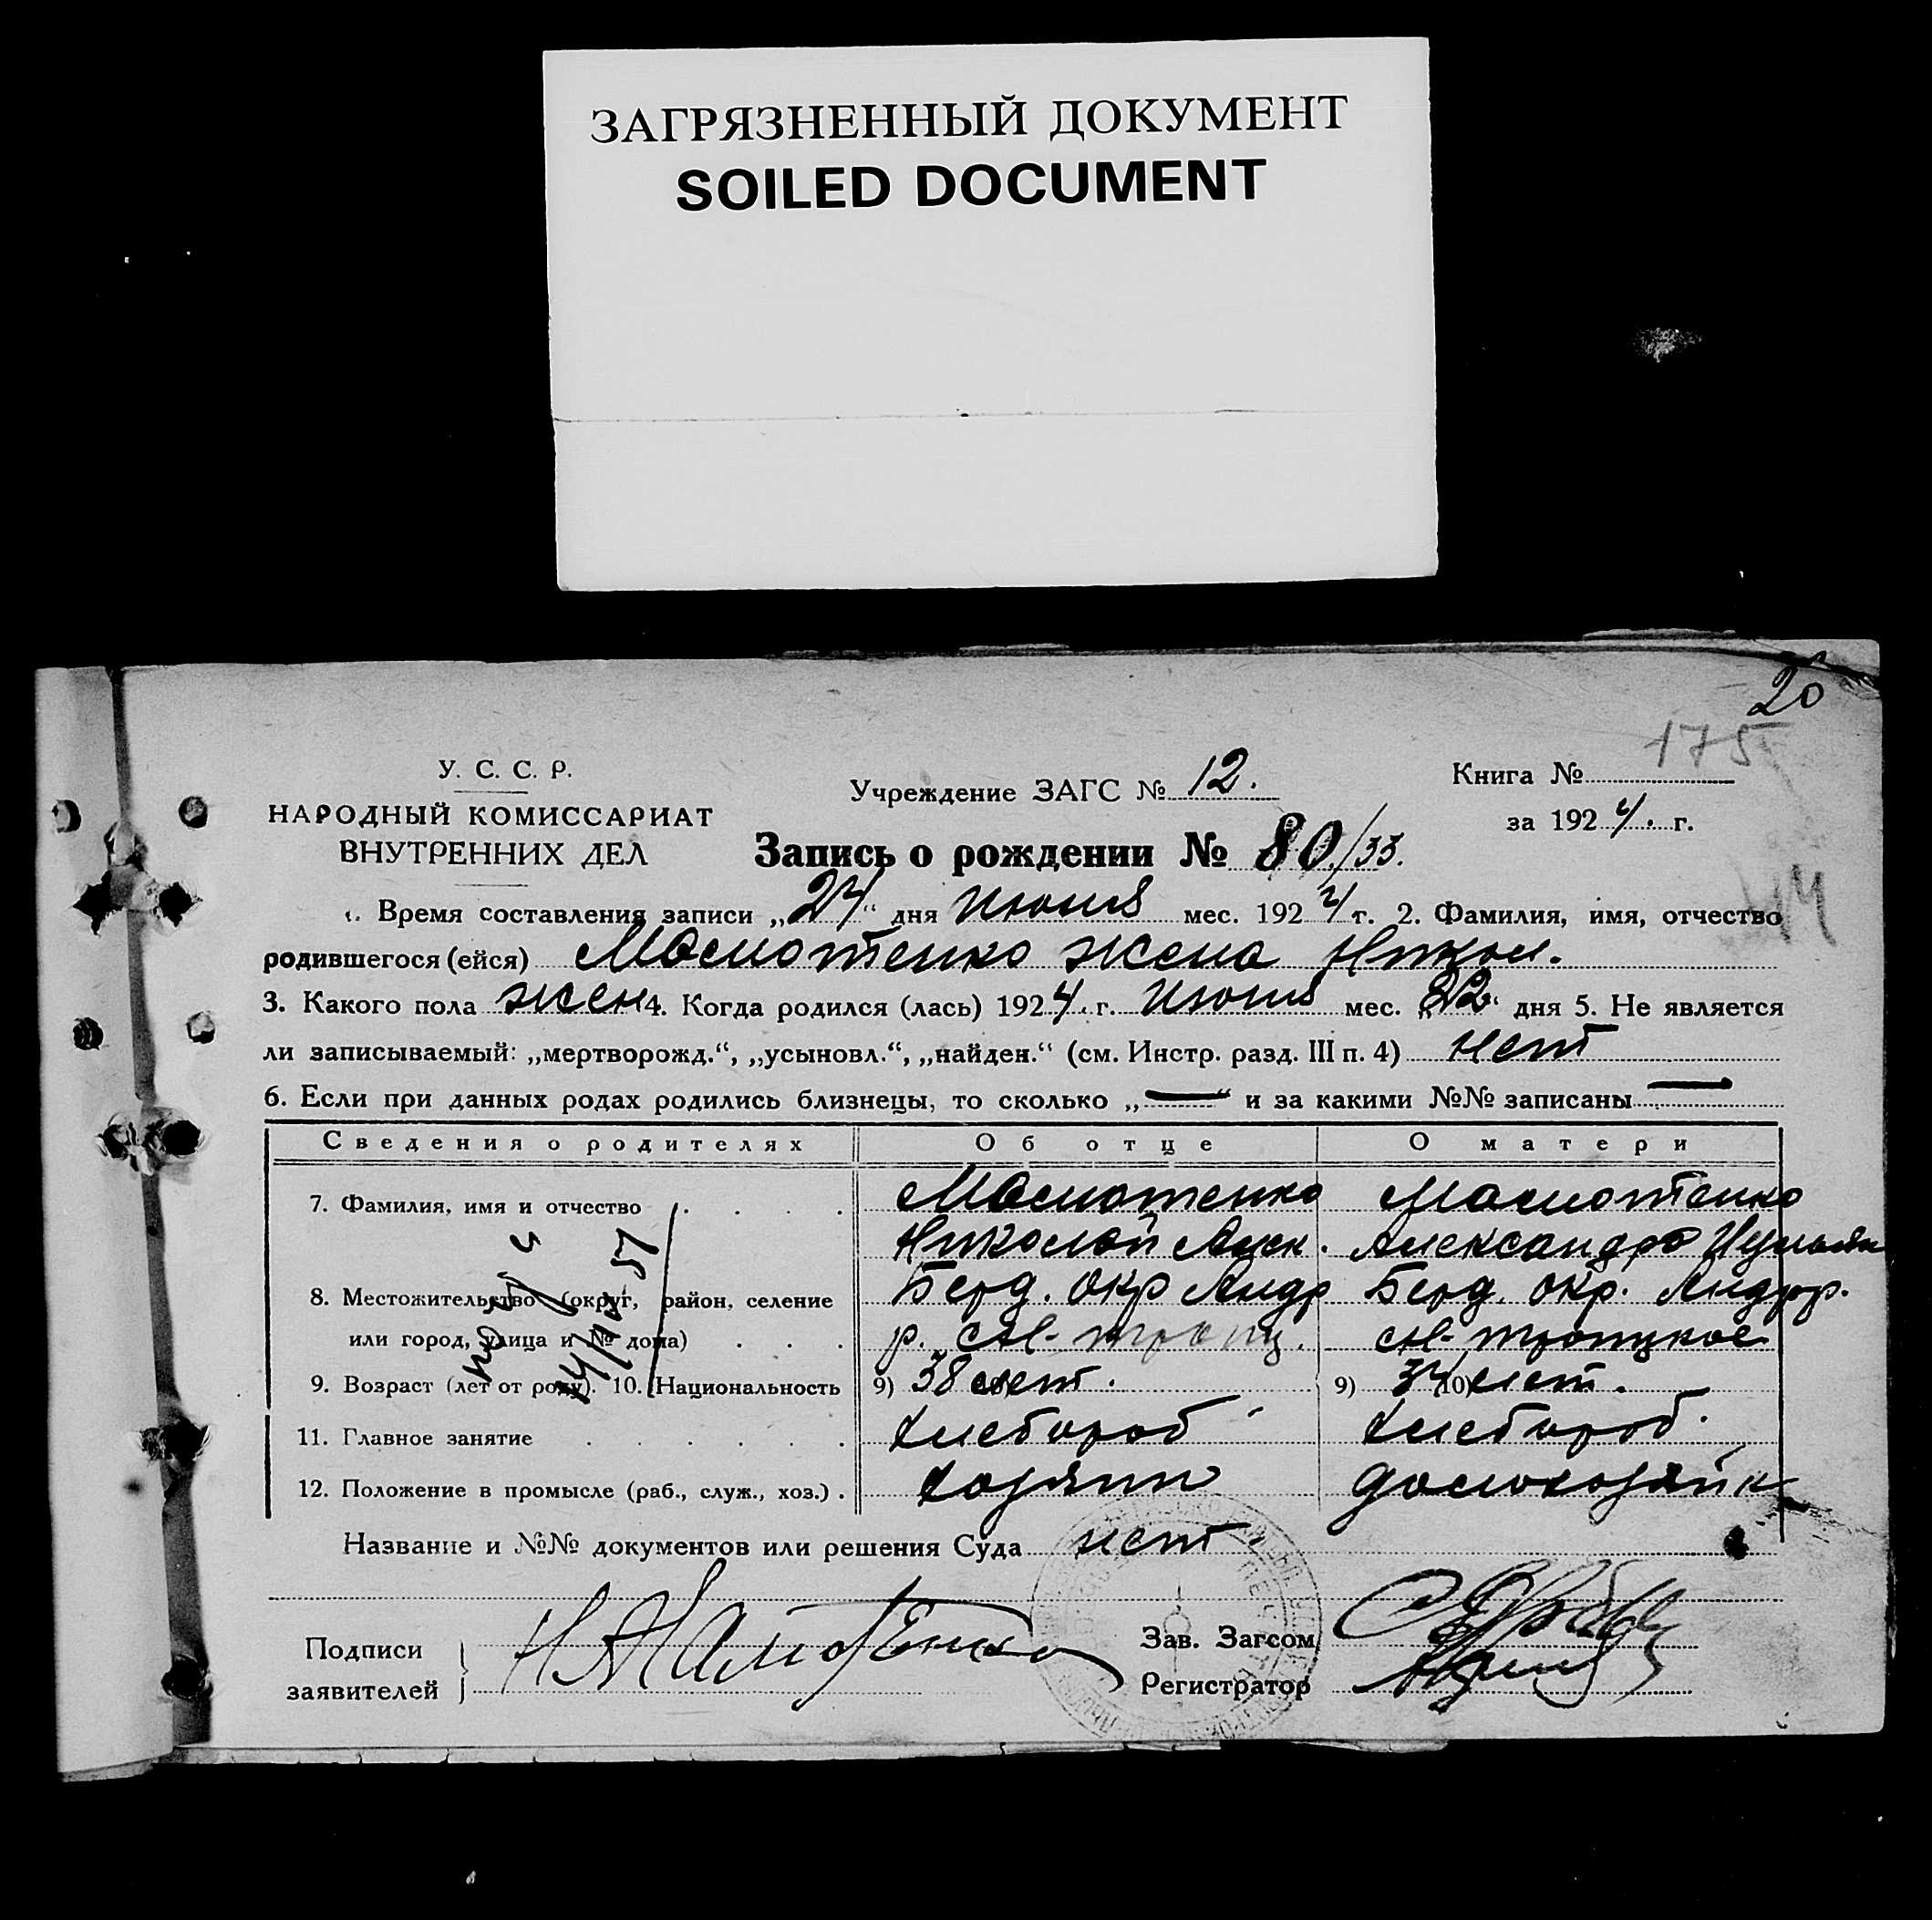 ЗАГРЯЗНЕННЫЙ ДОКУМЕНТ
SOILED DOCUMENT
20
175
У. С. С. Р.
НАРОДНЫЙ КОМИССАРИАТ
ВНУТРЕННИХ ДЕЛ
Учреждение ЗАГС № 12.
Книга №
за 1924. г.
Запись о рождении № 80/33.
1. Время составления записи „24“ дня Июня мес. 1924 г. 2. Фамилия, имя, отчество
родившегося (ейся) Малютенко жена Никол.
3. Какого пола жен 4. Когда родился (лась) 1924. г. Июня мес. „22“ дня 5. Не является
ли записываемый: „мертворожд.“, „усыновл.“, „найден.“ (см. Инстр. разд. III п. 4) нет
6. Если при данных родах родились близнецы, то сколько „—“ и за какими №№ записаны —
Сведения о родителях Об отце О матери
7. Фамилия, имя и отчество . . . . Малютенко Малютенко
Николай Алек. Александра
8. Местожительство (округ, район, селение Берд. окр Андр Берд. окр. Андр р.
или город, улица и № дома) . . . р. Н-троиц. Н-троицкое
9. Возраст (лет от роду). 10. Национальность 9) 38 лет. 9) 34 10) лет.
11. Главное занятие . . . . . . хлебороб хлебороб.
12. Положение в промысле (раб., служ., хоз.) . хозяин домохозяйк
Название и №№ документов или решения Суда нет
Подписи
заявителей
Зав. Загсом
Регистратор